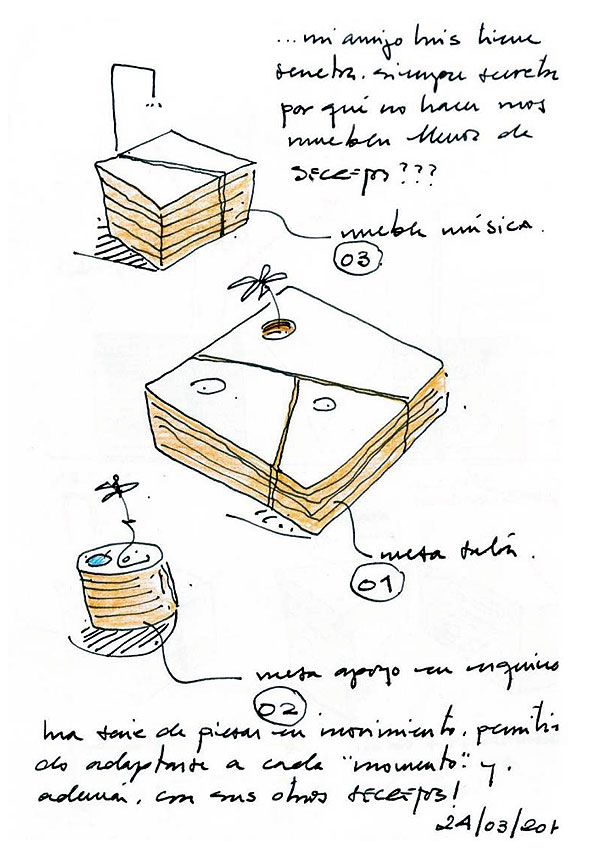 ...mi amigo luis tiene
secretos. siempre secretos
por qué no hacer unos
muebles llenos de
SECRETOS ???
mueble música.
03
mesa salón.
01
mesa apoyo en esquina
02
una serie de piezas en movimiento. permitien
do adaptarse a cada "momento" y.
además. con sus otros SECRETOS!
24/03/201